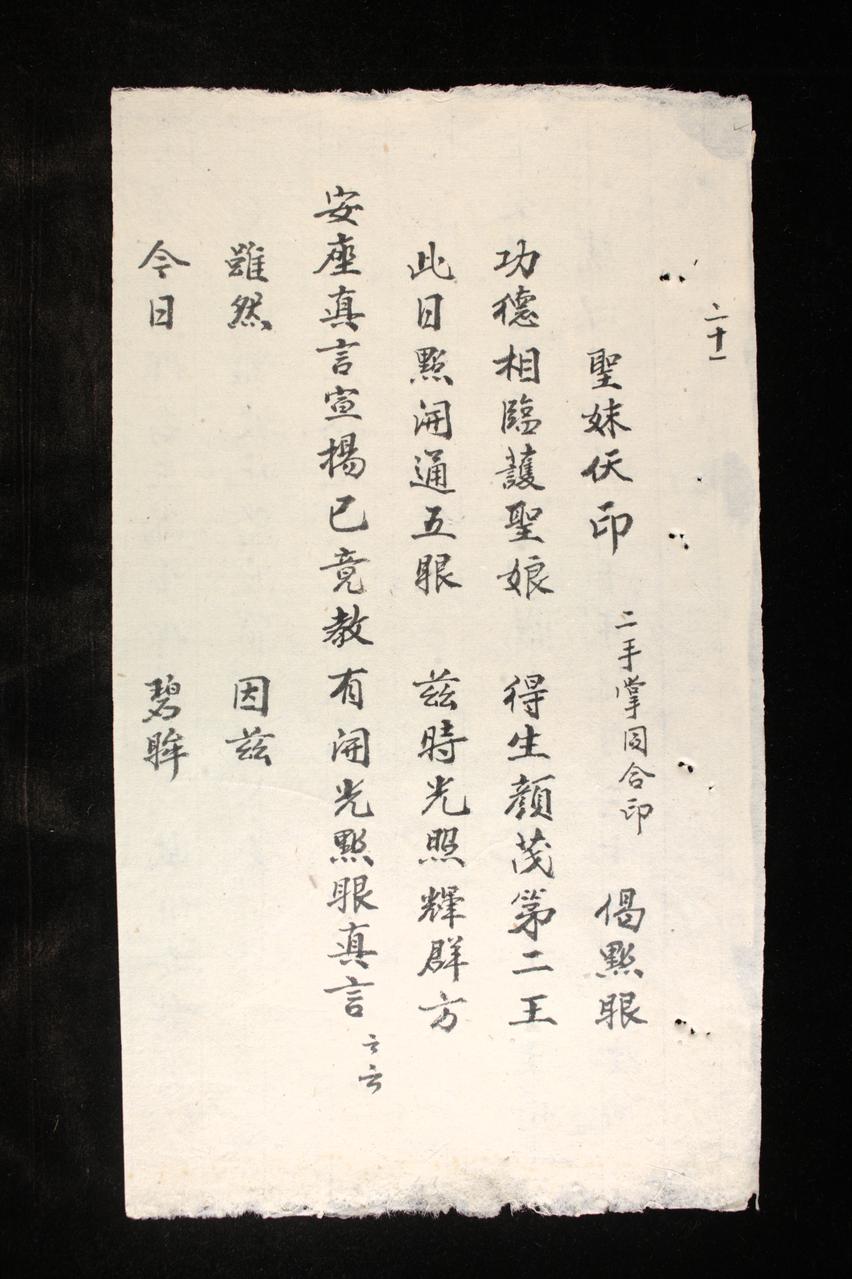 二十一
聖妹伏印 二手掌同合印 偈點眼
功德相臨護聖娘 得生顏茂第二王
此日點開通五眼 茲時光照輝群方
安座真言宣揚已竟教有開光點眼真言 云云
雖然 因茲
今日 碧眸